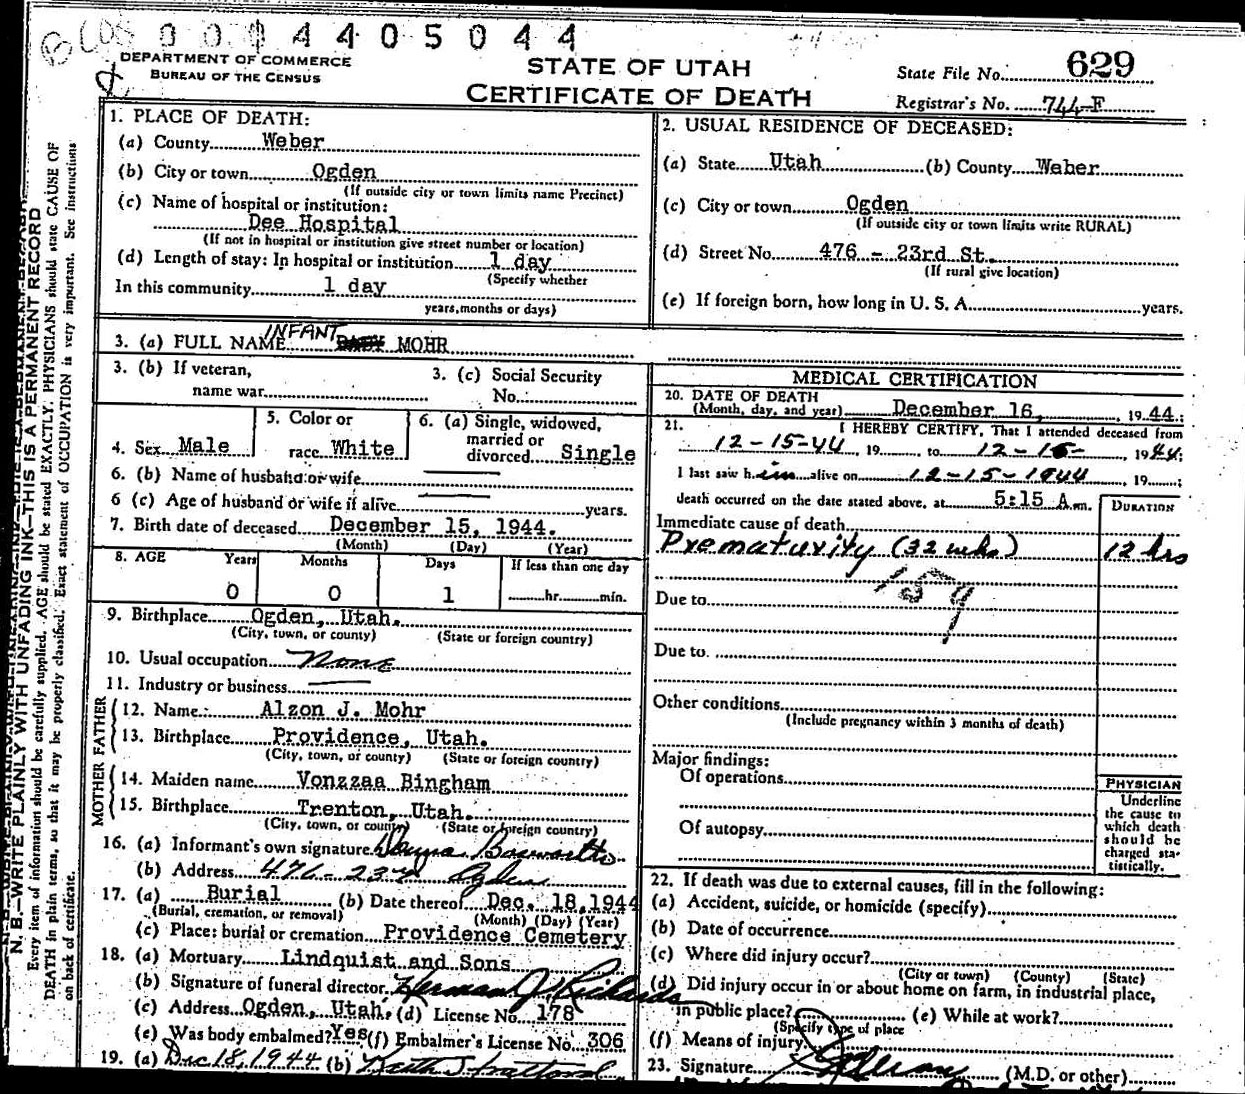 0 0 0 4 4 0 5 0 4 4
DEPARTMENT OF COMMERCE
BUREAU OF THE CENSUS
STATE OF UTAH
CERTIFICATE OF DEATH
State File No. 629
Registrar's No. 744-F
N. B.—WRITE PLAINLY WITH UNFADING INK—THIS IS A PERMANENT RECORD
Every item of information should be carefully supplied. AGE should be stated EXACTLY. PHYSICIANS should state CAUSE OF
DEATH in plain terms, so that it may be properly classified. Exact statement of OCCUPATION is very important. See instructions
on back of certificate.
1. PLACE OF DEATH:
(a) County Weber
(b) City or town Ogden
(If outside city or town limits name Precinct)
(c) Name of hospital or institution:
Dee Hospital
(If not in hospital or institution give street number or location)
(d) Length of stay: In hospital or institution 1 day
(Specify whether
In this community 1 day
years, months or days)
2. USUAL RESIDENCE OF DECEASED:
(a) State Utah (b) County Weber
(c) City or town Ogden
(If outside city or town limits write RURAL)
(d) Street No. 476 - 23rd St.
(If rural give location)
(e) If foreign born, how long in U. S. A. years.
3. (a) FULL NAME INFANT MOHR
3. (b) If veteran,
name war
3. (c) Social Security
No.
4. Sex Male
5. Color or
race White
6. (a) Single, widowed,
married or
divorced Single
6. (b) Name of husband or wife
6 (c) Age of husband or wife if alive years.
7. Birth date of deceased December 15, 1944.
(Month) (Day) (Year)
8. AGE Years Months Days If less than one day
0 0 1 hr. min.
9. Birthplace Ogden, Utah.
(City, town, or county) (State or foreign country)
10. Usual occupation None
11. Industry or business
FATHER
12. Name: Alzon J. Mohr
13. Birthplace Providence, Utah.
(City, town, or county) (State or foreign country)
MOTHER
14. Maiden name Vonzzaa Bingham
15. Birthplace Trenton, Utah.
(City, town, or county) (State or foreign country)
16. (a) Informant's own signature
(b) Address 476-23rd Ogden
17. (a) Burial (b) Date thereof Dec. 18, 1944
(Burial, cremation, or removal) (Month) (Day) (Year)
(c) Place: burial or cremation Providence Cemetery
18. (a) Mortuary Lindquist and Sons
(b) Signature of funeral director Herman J. Richards
(c) Address Ogden, Utah. (d) License No. 178
(e) Was body embalmed? Yes (f) Embalmer's License No. 306
19. (a) Dec 18, 1944 (b)
MEDICAL CERTIFICATION
20. DATE OF DEATH
(Month, day, and year) December 16, 1944.
21. I HEREBY CERTIFY, That I attended deceased from
12-15-44, 19 , to 12-16-, 1944;
I last saw him alive on 12-15-1944, 19 ;
death occurred on the date stated above, at 5:15 A m.
DURATION
Immediate cause of death
Prematurity (32 wks) 12 hrs
159
Due to
Due to.
Other conditions
(Include pregnancy within 3 months of death)
Major findings:
Of operations
Of autopsy
PHYSICIAN
Underline
the cause to
which death
should be
charged sta-
tistically.
22. If death was due to external causes, fill in the following:
(a) Accident, suicide, or homicide (specify)
(b) Date of occurrence
(c) Where did injury occur?
(City or town) (County) (State)
(d) Did injury occur in or about home on farm, in industrial place,
in public place? (e) While at work?
(Specify type of place
(f) Means of injury
23. Signature (M.D. or other)